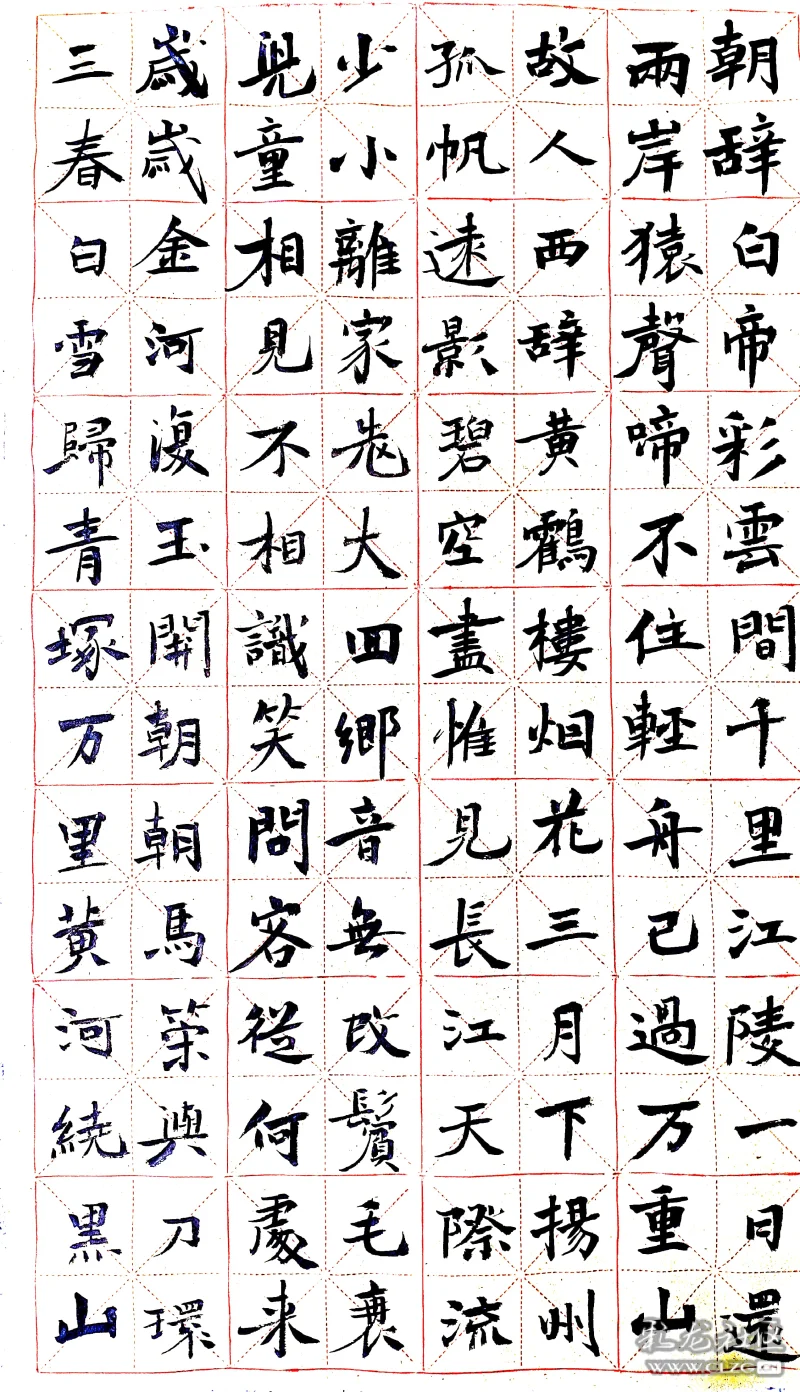 朝辞白帝彩雲間千里江陵一日還
兩岸猿聲啼不住輕舟已過万重山
故人西辞黄鶴樓烟花三月下揚州
孤帆遠影碧空盡惟見長江天際流
少小離家老大回鄉音無改鬢毛衰
兒童相見不相識笑問客從何處来
歲歲金河復玉開朝朝馬策與刀環
三春白雪歸青塚万里黄河繞黑山
彩龙社区
www.CLZG.CN